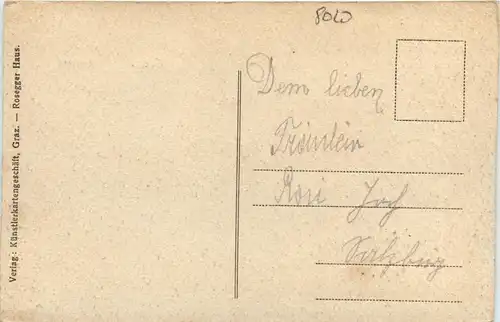 8010
Verlag: Künstlerkartengeschäft, Graz. — Rosegger-Haus.
Dem lieben
Fräulein
Rosi
Salzburg